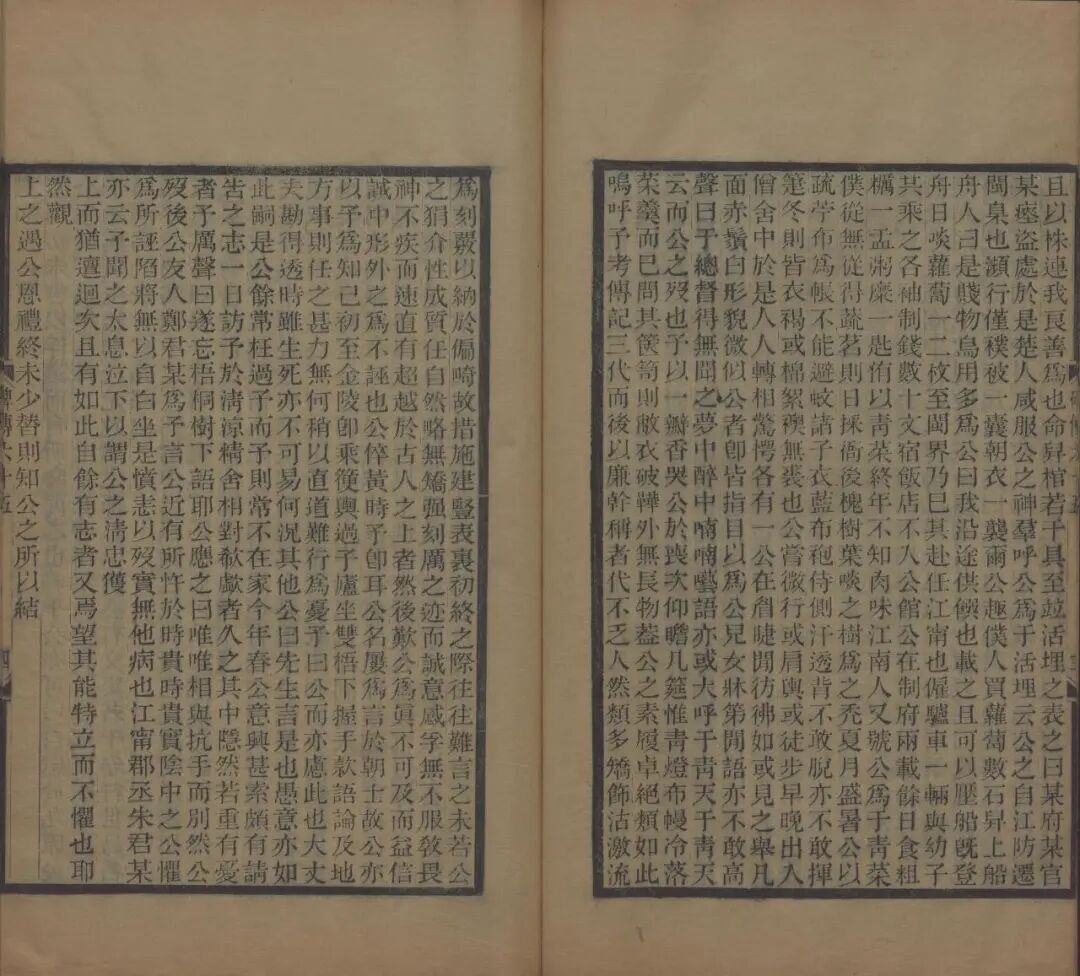 且以株連我良善為也命舁棺若干具至竝活埋之表之曰某府某官
某瘞盜處於是楚人咸服公之神羣呼公為于活埋云公之自江防遷
閩臬也瀕行僅襆被一囊朝衣一襲爾公趣僕人買蘿蔔數石舁上船
舟人曰是賤物烏用多為公曰我沿途供饌也載之且可以壓船旣登
舟日啖蘿蔔一二枚至閩界乃巳其赴任江甯也僱驢車一輛與幼子
共乘之各袖制錢數十文宿飯店不入公館公在制府兩載餘日食粗
糲一盂粥糜一匙侑以靑菜終年不知肉味江南人又號公為于靑菜
僕從無從得蔬茗則日採衙後槐樹葉啖之樹為之禿夏月盛暑公以
疏苧布為帳不能避蚊諸子衣藍布袍侍側汗透背不敢脫亦不敢揮
箑冬則皆衣褐或棉絮襖無裘也公嘗微行或肩輿或徒步早晚出入
僧舍中於是人人轉相驚愕各有一公在眉睫閒彷彿如或見之舉凡
面赤鬚白形貌微似公者卽皆指目以為公兒女牀第閒語亦不敢高
聲曰于總督得無聞之夢中醉中喃喃囈語亦或大呼于靑天于靑天
云而公之歿也予以一瓣香哭公於喪次仰瞻几筵惟靑燈布幔冷落
菜羹而巳問其篋笥則敝衣破鞾外無長物葢公之素履卓絕類如此
嗚呼予考傳記三代而後以廉幹稱者代不乏人然類多矯飾沽激流
為刻覈以納於偏崎故措施建豎表裏初終之際往往難言之未若公
之狷介性成質任自然略無矯强刻厲之迹而誠意感孚無不服敎畏
神不疾而速直有超越於古人之上者然後歎公為眞不可及而益信
誠中形外之為不誣也公倅黃時予卽耳公名屢為言於朝士故公亦
以予為知己初至金陵卽乘筧輿過予廬坐雙梧下握手款語論及地
方事則任之甚力無何稍以直道難行為憂予曰公而亦慮此也大丈
夫勘得透時雖生死亦不可易何況其他公曰先生言是也愚意亦如
此嗣是公餘常枉過予而予則常不在家今年春公意興甚索頗有請
告之志一日訪予於淸涼精舍相對欷歔者久之其中隱然若重有憂
者予厲聲曰遂忘梧桐樹下語耶公應之曰唯唯相與抗手而別然公
歿後公友人鄭君某為予言公近有所忤於時貴時貴實陰中之公懼
為所誣陷將無以自白坐是憤志以歿實無他病也江甯郡丞朱君某
亦云予聞之太息泣下以謂公之淸忠獲
上而猶邅迴次且有如此自餘有志者又焉望其能特立而不懼也耶
然觀
上之遇公恩禮終未少替則知公之所以結